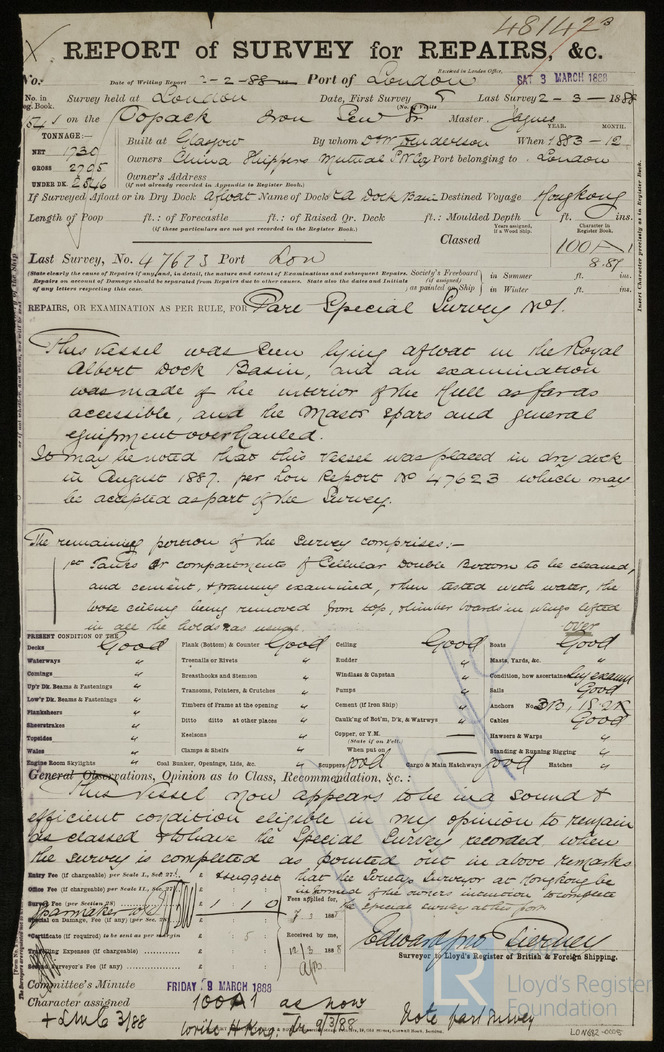 48142
REPORT of SURVEY for REPAIRS, &c.
No.
Date of Writing Report 2-2-88 Port of London
Received in London Office,
SAT 3 MARCH 1888
No. in Reg. Book.
Survey held at London Date, First Survey Last Survey 2-3-1888
(No. of Visits)
on the Topack Iron Scw Sr Master Jaques
YEAR. MONTH.
TONNAGE:—
NET 1730
GROSS 2705
UNDER DK. 2546
Built at Glasgow By whom D&W Henderson When 1883-12
Owners China Shippers Mutual S N Coy Port belonging to London
Owner's Address
(if not already recorded in Appendix to Register Book.)
If Surveyed Afloat or in Dry Dock afloat Name of Dock R.A Dock Basin Destined Voyage Hongkong
Length of Poop ft.: of Forecastle ft.: of Raised Qr. Deck ft.: Moulded Depth ft. ins.
(if these particulars are not yet recorded in the Register Book.)
Years assigned, if a Wood Ship.
Character in Register Book.
Classed 100 A 1
8.87
Last Survey, No. 47623 Port Lon
(State clearly the cause of Repairs if any, and, in detail, the nature and extent of Examinations and subsequent Repairs.
Repairs on account of Damage should be separated from Repairs due to other causes. State also the dates and Initials of any letters respecting this case.
Society's Freeboard (if assigned) as painted on Ship
in Summer ft. ins.
in Winter ft. ins.
REPAIRS, OR EXAMINATION AS PER RULE, FOR Part Special Survey No 1.
This Vessel was seen lying afloat in the Royal
Albert Dock Basin, and an examination
was made of the interior of the Hull as far as
accessible, and the Masts spars and general
equipment overhauled.
It may be noted that this Vessel was placed in dry dock
in August 1887. per Lon Report No 47623 which may
be accepted as part of the Survey.
The remaining portion of the Survey comprises:-
1st Tanks or compartments of Cellular Double Bottom to be cleaned,
and cement, & framing examined, & then tested with water, the
loose ceiling being removed from top, & limber boards in wings lifted
in all the holds as usual.
over
PRESENT CONDITION OF THE
Decks Good
Waterways "
Comings "
Up'r Dk. Beams & Fastenings "
Low'r Dk. Beams & Fastenings "
Planksheers "
Sheerstrakes "
Topsides "
Wales "
Engine Room Skylights "
Plank (Bottom) & Counter Good
Treenails or Rivets "
Breasthooks and Stemson "
Transoms, Pointers, & Crutches "
Timbers of Frame at the opening "
Ditto ditto at other places "
Keelsons "
Clamps & Shelfs "
Coal Bunker, Openings, Lids, &c. "
Ceiling Good
Rudder "
Windlass & Capstan "
Pumps "
Cement (if Iron Ship) "
Caulk'g of Bot'm, D'k, & Watrwys "
Copper, or Y.M.
(State if on Felt)
When put on
Scuppers good Cargo & Main Hatchways good
Boats Good
Masts, Yards, &c. "
Condition, how ascertained by exam
Sails Good
Anchors No 3B, 1S. 2K
Cables Good
Hawsers & Warps "
Standing & Running Rigging "
Hatches "
General Observations, Opinion as to Class, Recommendation, &c.:
This Vessel now appears to be in a sound &
efficient condition eligible in my opinion to remain
as classed & to have the Special Survey recorded when
the survey is completed as pointed out in above remarks
& suggest that the Society's Surveyor at Hongkong be
informed of the owners intention to complete
the special survey at this port
Entry Fee (if chargeable) per Scale I., Sec. 27
Office Fee (if chargeable) per Scale II., Sec. 27
Survey Fee (per Section 28) £ 1 : 1 : 0
Special or Damage Fee, if any) (per Sec. 28)
Certificate (if required) to be sent as per margin : 5 :
Travelling Expenses (if chargeable)
Second Surveyor's Fee (if any)
Fees applied for,
7/3 1888
Received by me,
12/3 1888
Edward Jno Tierney
Surveyor to Lloyd's Register of British & Foreign Shipping.
Committee's Minute FRIDAY 9 MARCH 1888
Character assigned 100A1 as now
+ LMC 3/88
Write H Kong. 9/3/88
Note part survey
LR
Lloyd's Register
Foundation
LON682-0005